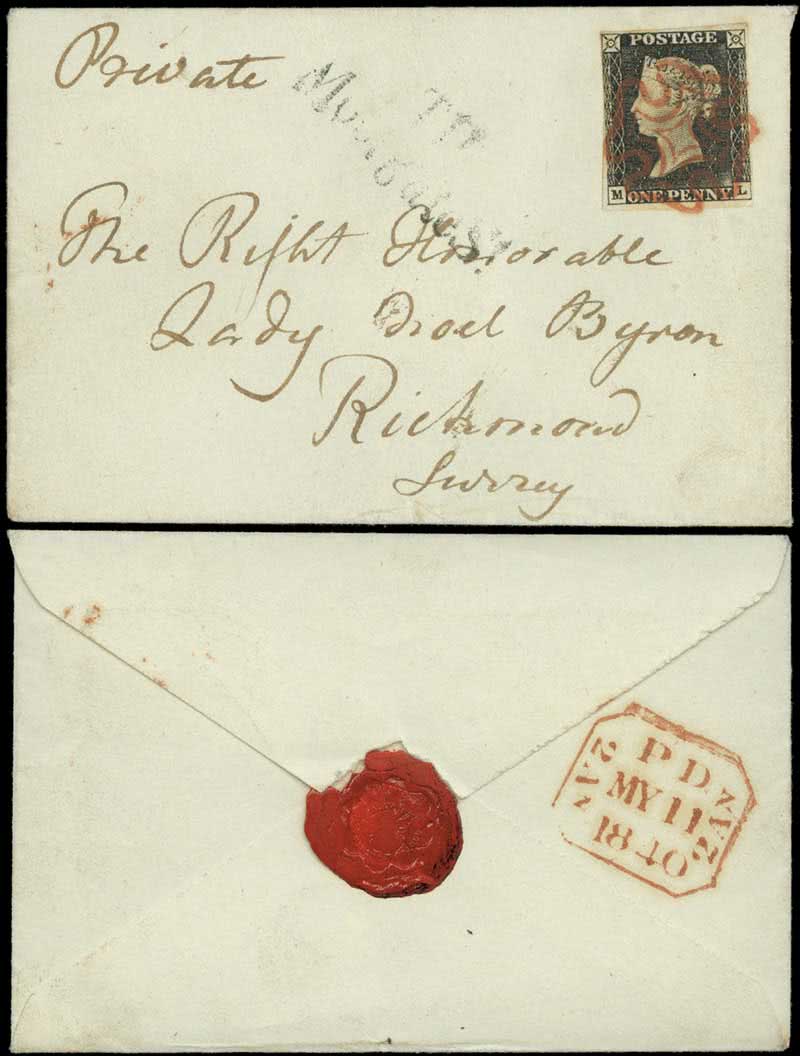 Private
POSTAGE
M ONE PENNY L
The Right Honorable
Lady Noel Byron
Richmond
Surrey
PD
MY 11
1840